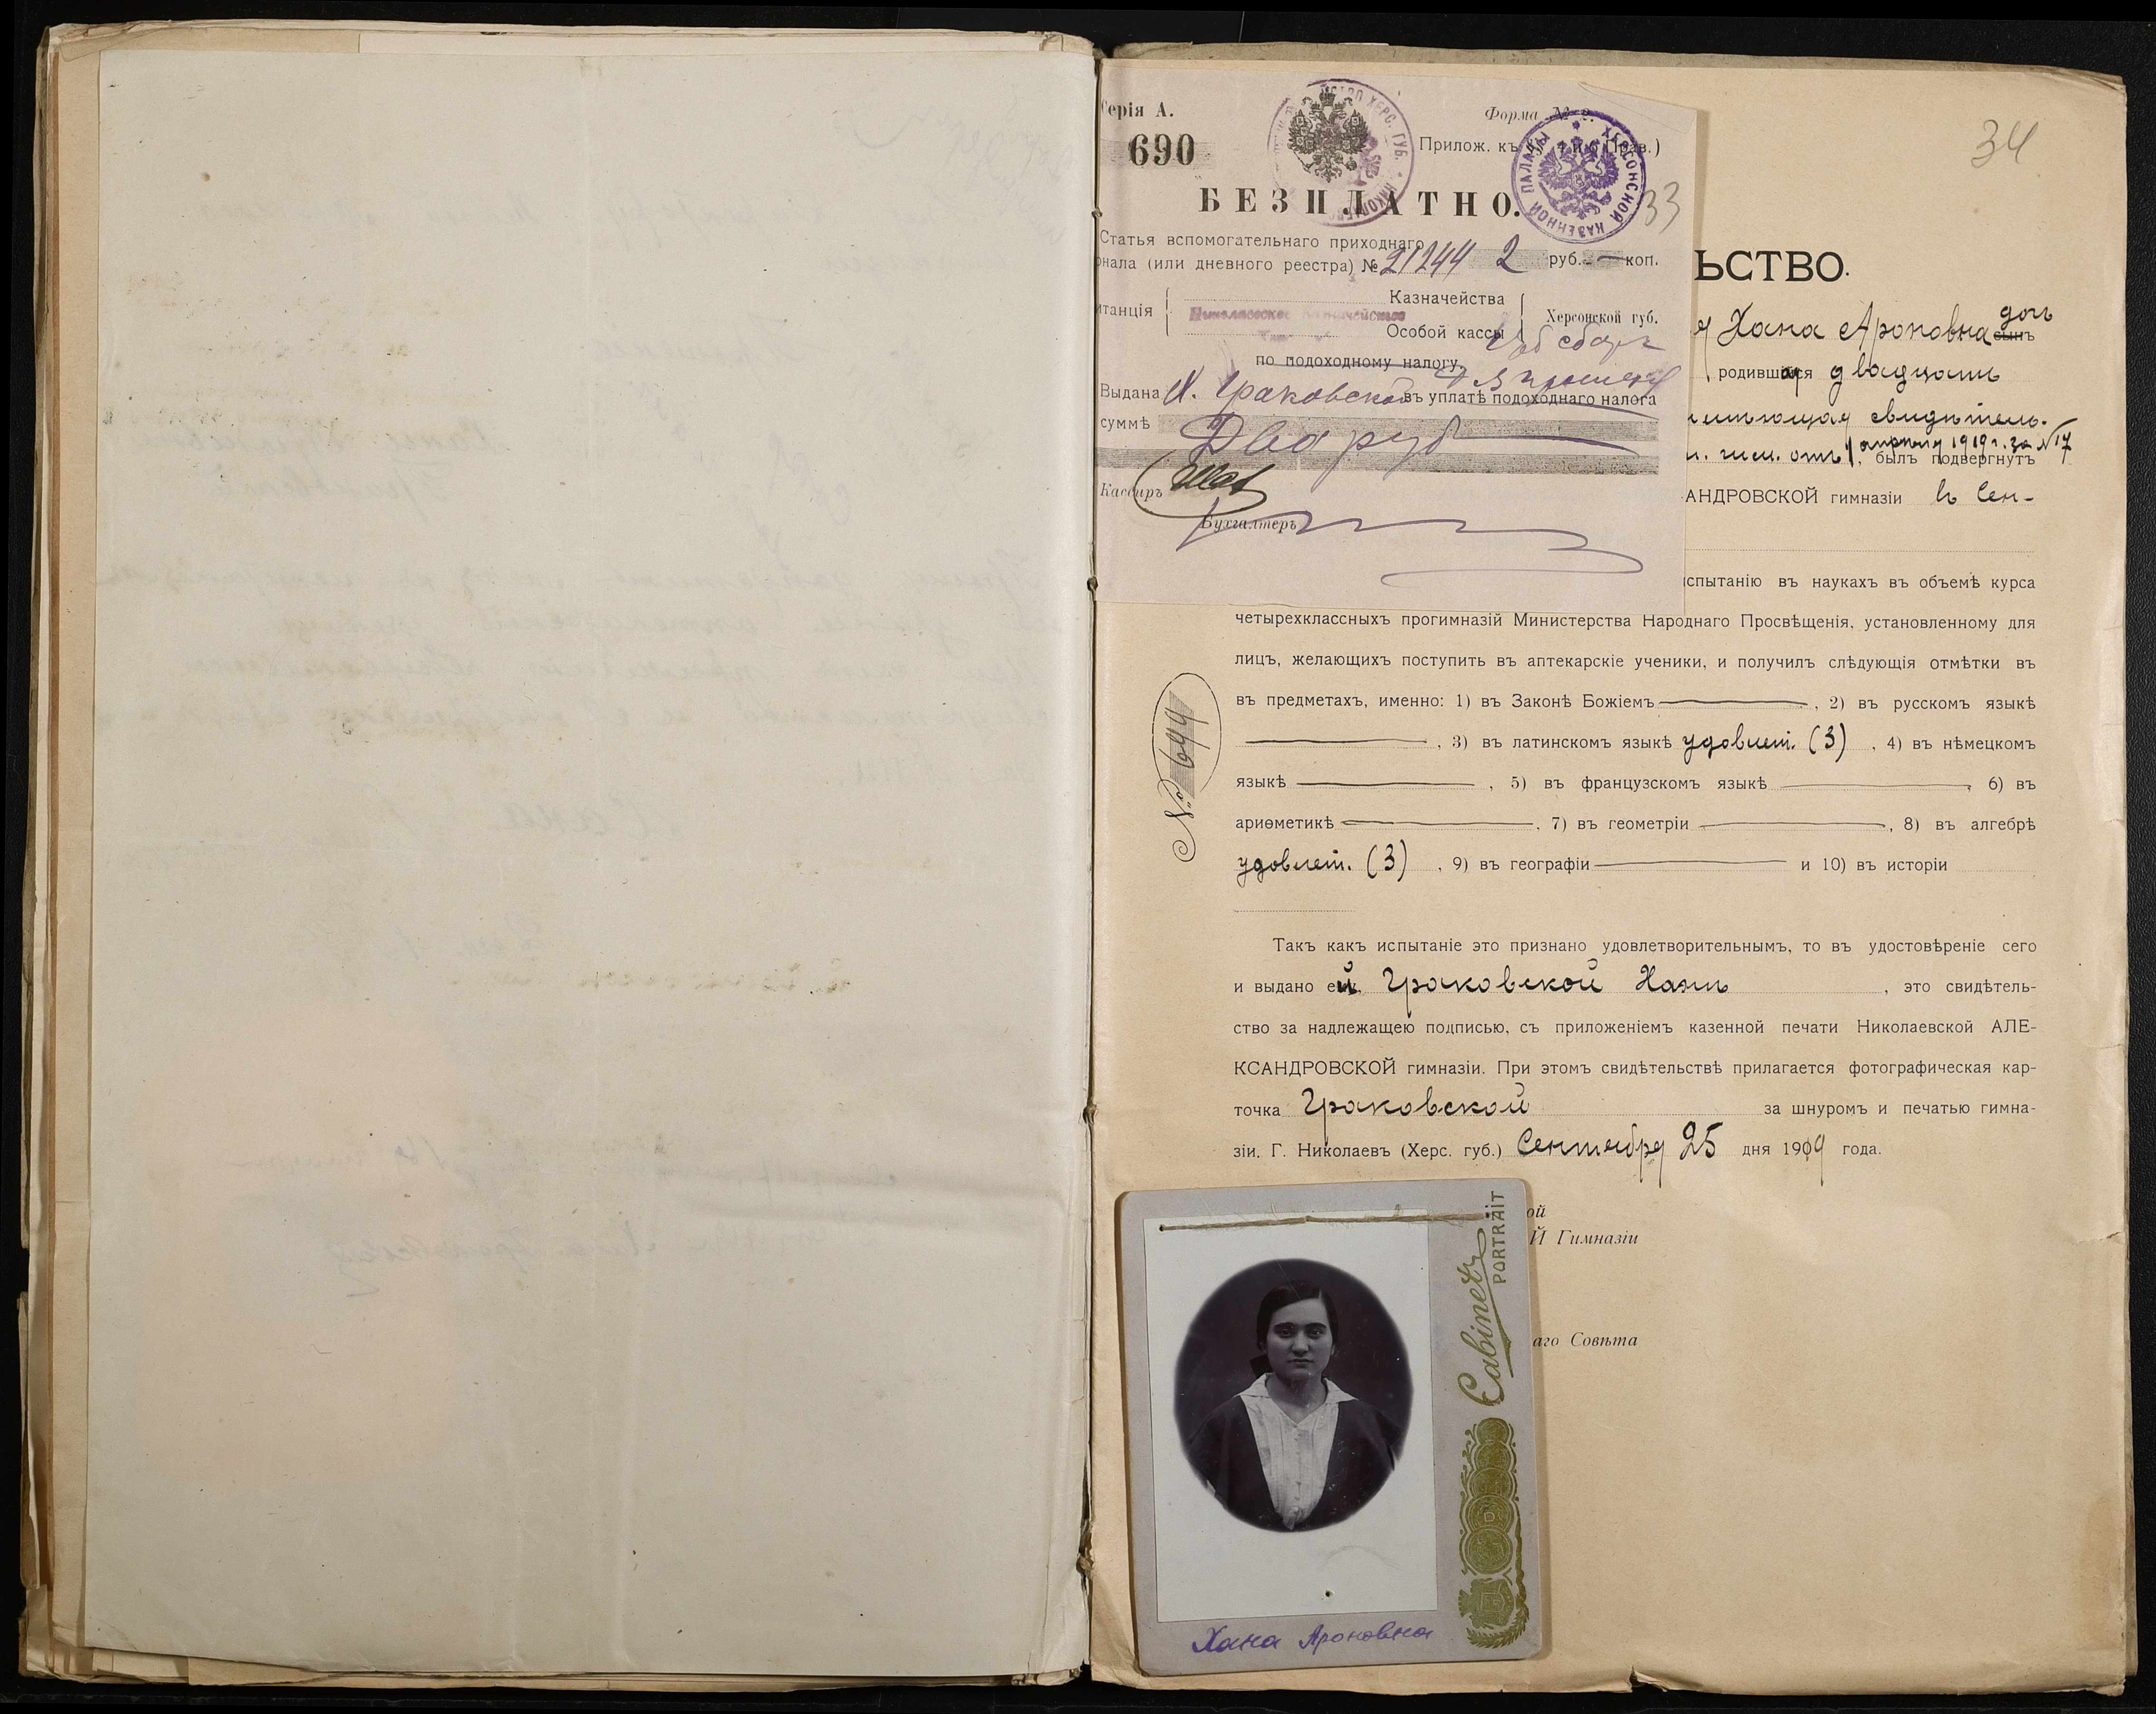 34
Серія А.
Форма №
690
Прилож. къ
БЕЗПЛАТНО.
33
Статья вспомогательнаго приходнаго
рнала (или дневного реестра) № 21244 2 руб. — коп.
Казначейства
итанція
Николаевское Казначейство
Херсонской губ.
Особой кассы
по подоходному налогу.
Выдана Х. Граковской въ уплатѣ подоходнаго налога
суммѣ
Два руб
Кассиръ
Бухгалтеръ
ХЕРСОНСКОЙ КАЗЕННОЙ ПАЛАТЫ
ЬСТВО.
Хана Ароновна дочь сынъ
родившаяся двадцать
имѣющая свидѣтель.
гим. отъ 1 апрѣля 1919 г. за № 17
, былъ подвергнутъ
АНДРОВСКОЙ гимназіи въ Сен-
испытанію въ наукахъ въ объемѣ курса
четырехклассныхъ прогимназій Министерства Народнаго Просвѣщенія, установленному для
лицъ, желающихъ поступить въ аптекарскіе ученики, и получилъ слѣдующія отмѣтки въ
въ предметахъ, именно: 1) въ Законѣ Божіемъ — , 2) въ русскомъ языкѣ
— , 3) въ латинскомъ языкѣ удовлет. (3) , 4) въ нѣмецкомъ
языкѣ — , 5) въ французскомъ языкѣ — , 6) въ
ариѳметикѣ — , 7) въ геометріи — , 8) въ алгебрѣ
удовлет. (3) , 9) въ географіи — и 10) въ исторіи
№ 644
Такъ какъ испытаніе это признано удовлетворительнымъ, то въ удостовѣреніе сего
и выдано ей Граковской Ханѣ , это свидѣтель-
ство за надлежащею подписью, съ приложеніемъ казенной печати Николаевской АЛЕ-
КСАНДРОВСКОЙ гимназіи. При этомъ свидѣтельствѣ прилагается фотографическая кар-
точка Граковской за шнуромъ и печатью гимна-
зіи. Г. Николаевъ (Херс. губ.) Сентября 25 дня 1919 года.
ой
Й Гимназіи
аго Совѣта
Cabinet
PORTRAIT
Хана Ароновна